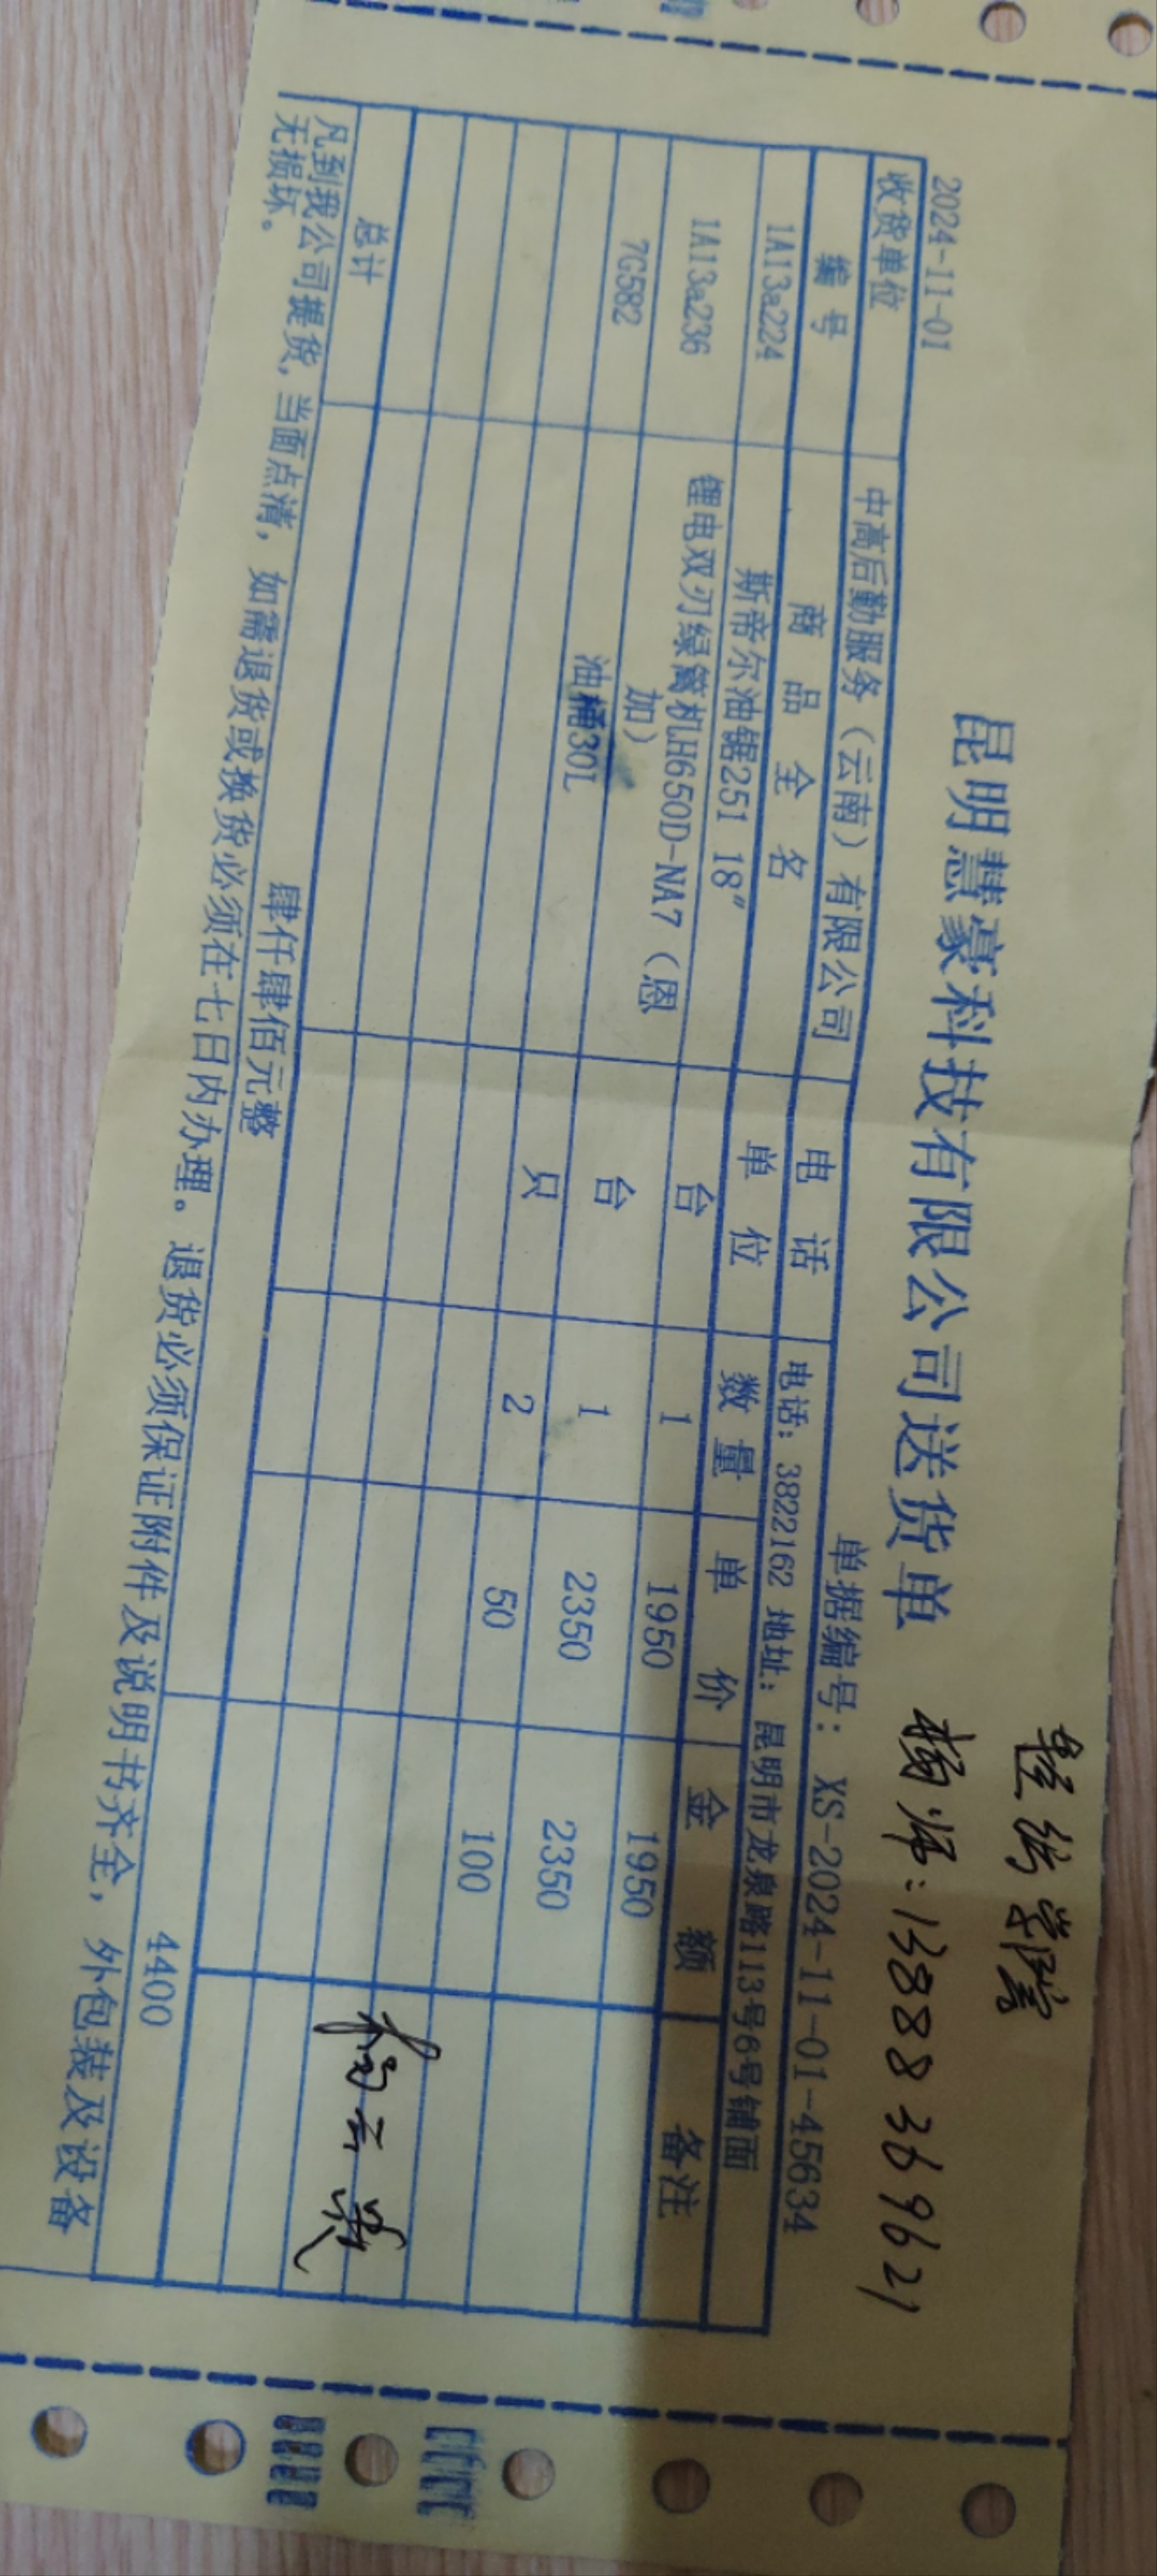 昆明慧豪科技有限公司送货单
:13888369621
2024-11-01
单据编号: XS-2024-11-01-45634
收货单位 中高后勤服务（云南）有限公司 电话 电话: 3822162 地址: 昆明市龙泉路113号6号铺面
编号 商品全名 单位 数量 单价 金额 备注
1A13a224 斯帝尔油锯251 18" 台 1 1950 1950
1A13a236 锂电双刃绿篱机LH650D-NA7（恩加） 台 1 2350 2350
7G582 油桶30L 只 2 50 100
总计 肆仟肆佰元整 4400
凡到我公司提货, 当面点清, 如需退货或换货必须在七日内办理。退货必须保证附件及说明书齐全, 外包装及设备
无损坏。